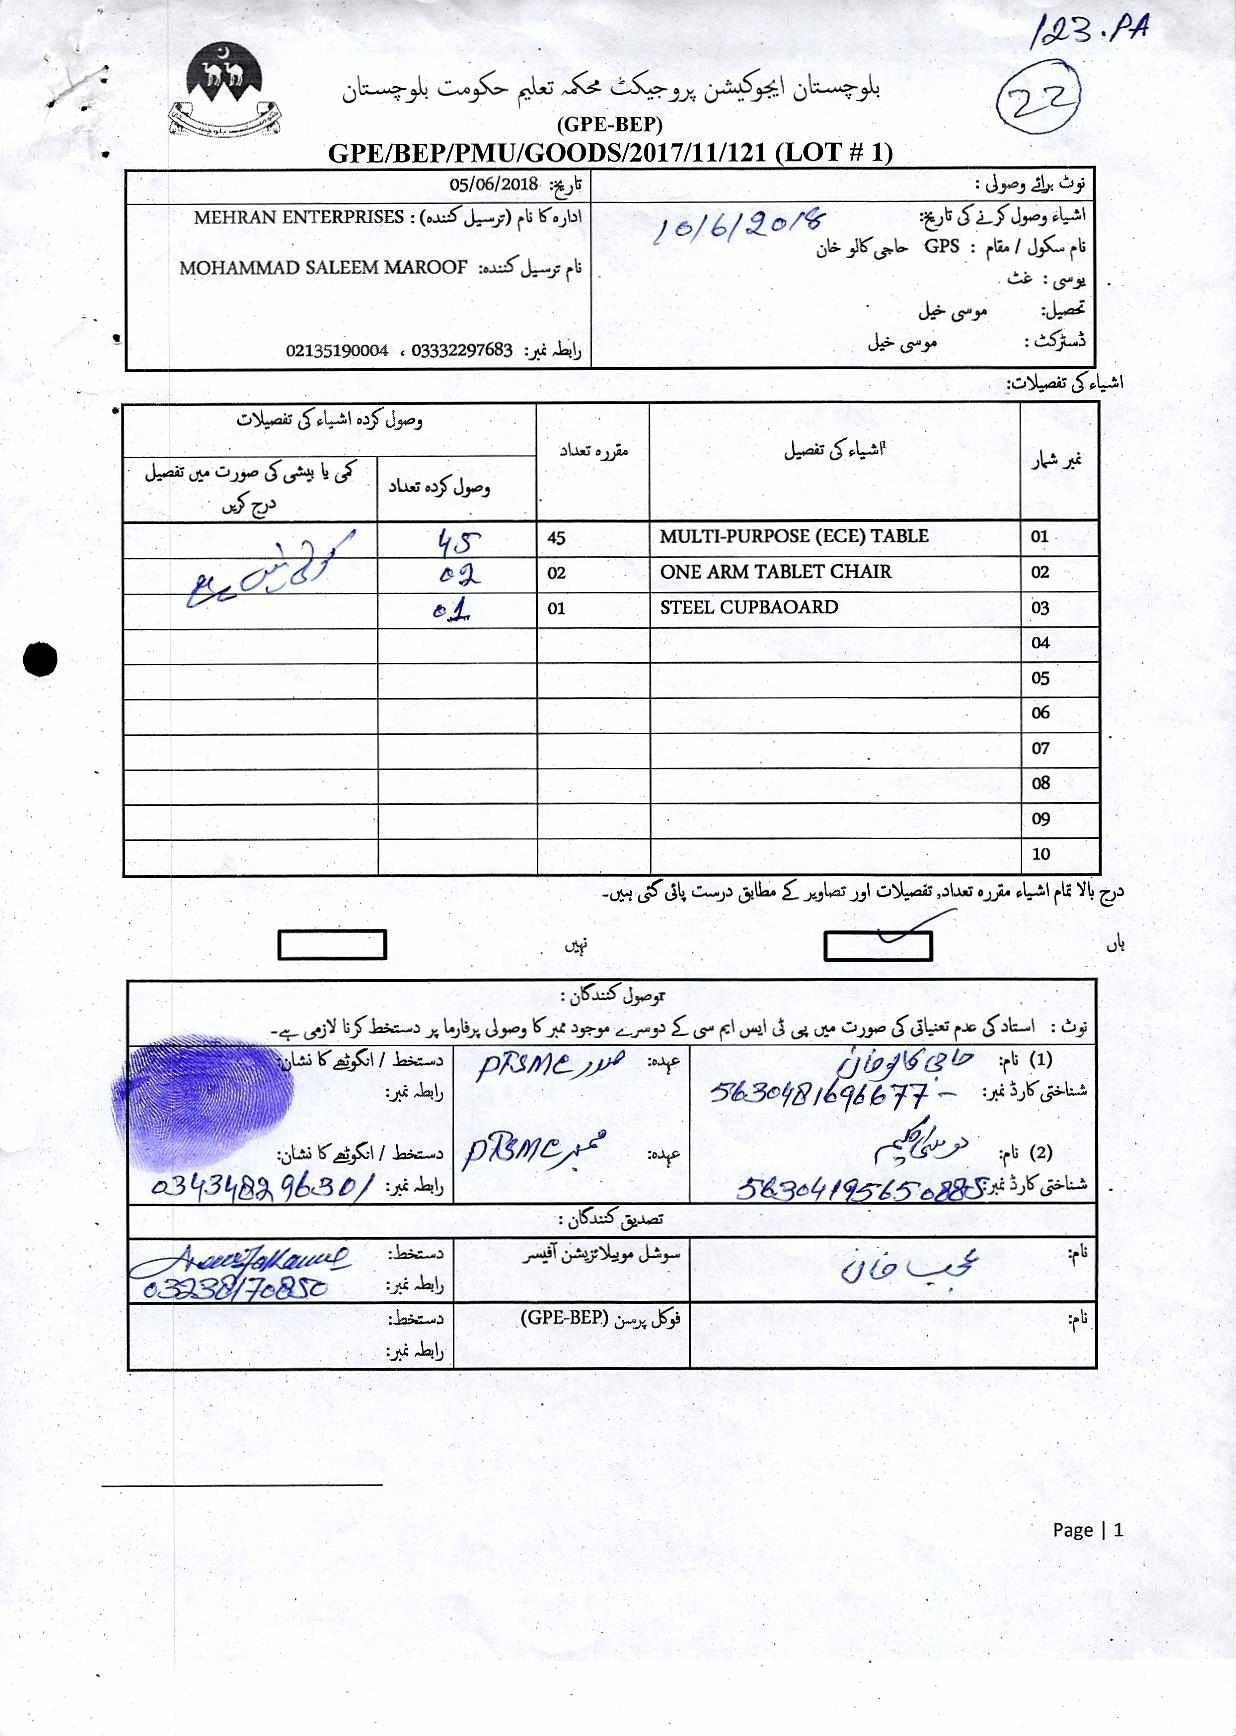 123.PA
22
بلوچستان ایجوکیشن پروجیکٹ محکمہ تعلیم حکومت بلوچستان
(GPE-BEP)
GPE/BEP/PMU/GOODS/2017/11/121 (LOT # 1)
نوٹ برائے وصولی :
اشیاء وصول کرنے کی تاریخ: 10/6/2018
نام سکول / مقام : GPS حاجی کالو خان
یوسی : غٹ
تحصیل: موسی خیل
ڈسٹرکٹ : موسی خیل
تاریخ: 05/06/2018
ادارہ کا نام (ترسیل کنندہ) : MEHRAN ENTERPRISES
نام ترسیل کنندہ: MOHAMMAD SALEEM MAROOF
رابطہ نمبر: 03332297683 ، 02135190004
اشیاء کی تفصیلات:
نمبر شمار اشیاء کی تفصیل مقررہ تعداد وصول کردہ اشیاء کی تفصیلات
وصول کردہ تعداد کمی یا بیشی کی صورت میں تفصیل درج کریں
01 MULTI-PURPOSE (ECE) TABLE 45 45
کوئی نہیں ہے
02 ONE ARM TABLET CHAIR 02 02
03 STEEL CUPBAOARD 01 01
04
05
06
07
08
09
10
درج بالا تمام اشیاء مقررہ تعداد, تفصیلات اور تصاویر کے مطابق درست پائی گئی ہیں۔
ہاں نہیں
وصول کنندگان :
نوٹ : استاد کی عدم تعیناتی کی صورت میں پی ٹی ایس ایم سی کے دوسرے موجود ممبر کا وصولی پرفارما پر دستخط کرنا لازمی ہے۔
(1) نام: حاجی کالو خان عہدہ: صدر PTSMC دستخط / انگوٹھے کا نشان:
شناختی کارڈ نمبر: 5630481696677 رابطہ نمبر:
(2) نام: عہدہ: ممبر PTSMC دستخط / انگوٹھے کا نشان:
شناختی کارڈ نمبر: 56304195650885 رابطہ نمبر: 03434829630/
تصدیق کنندگان :
نام: محب خان سوشل موبیلائزیشن آفیسر دستخط:
رابطہ نمبر: 03238170850
نام: فوکل پرسن (GPE-BEP) دستخط:
رابطہ نمبر:
Page | 1